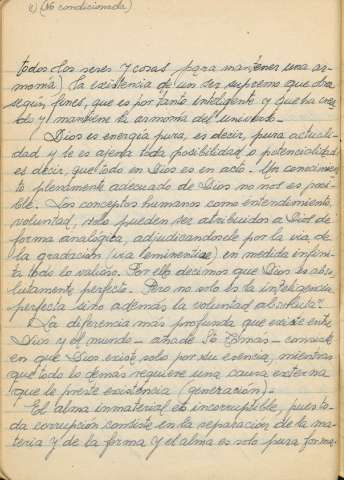 2) (No condicionada)
todos los seres y cosas, para mantener una ar-
monía) la existencia de un ser supremo que obra
según fines, que es por tanto inteligente y que ha crea
do y mantiene la armonía del universo.-
Dios es energía pura, es decir, pura actuali-
dad y le es ajena toda posibilidad o potencialidad
es decir, que todo en Dios es en acto. Un conocimien
to plenamente adecuado de Dios no nos es posi-
ble. Los conceptos humanos como entendimiento,
voluntad, solo pueden ser atribuidos a Dios de
forma analógica, adjudicandosele por la via de
la gradación (via eminentiae) en medida infini-
ta todo lo valioso. Por ello decimos que Dios es abso
lutamente perfecto. Pero no solo es la inteligencia
perfecta sino además la voluntad absoluta.2
La diferencia más profunda que existe entre
Dios y el mundo - añade Sto Tomás - consiste
en que Dios existe solo por su esencia, mientras
que todo lo demás requiere una causa externa
que le preste existencia (generación).-
El alma inmaterial es incorruptible, pues to-
da corrupción consiste en la separación de la ma-
teria y de la forma y el alma es solo pura forma.